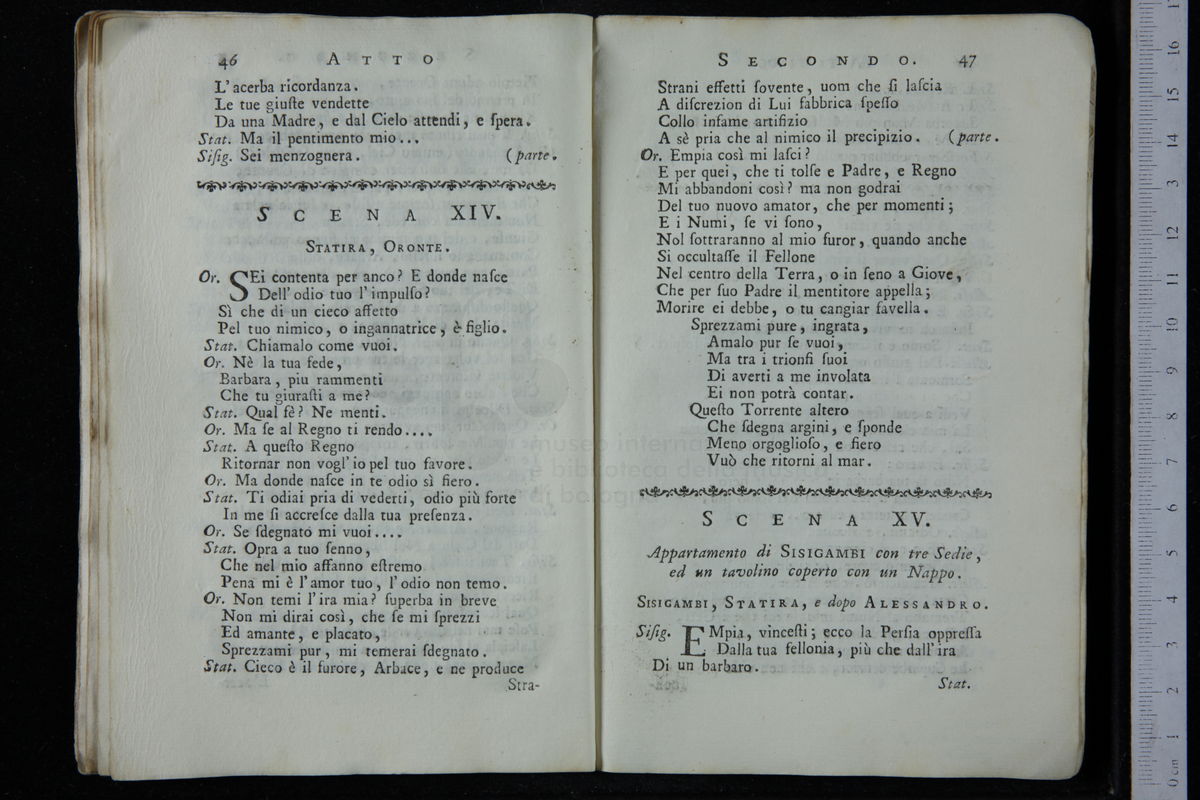 46 ATTO
L'acerba ricordanza.
Le tue giuſte vendette
Da una Madre, e dal Cielo attendi, e ſpera.
Stat. Ma il pentimento mio...
Siſig. Sei menzognera. (parte.
SCENA XIV.
STATIRA, ORONTE.
Or. SEi contenta per anco? E donde naſce
Dell' odio tuo l'impulſo?
Sì che di un cieco affetto
Pel tuo nimico, o ingannatrice, è figlio.
Stat. Chiamalo come vuoi.
Or. Nè la tua fede,
Barbara, piu rammenti
Che tu giuraſti a me?
Stat. Qual fè? Ne menti.
Or. Ma ſe al Regno ti rendo....
Stat. A queſto Regno
Ritornar non vogl'io pel tuo favore.
Or. Ma donde naſce in te odio sì fiero.
Stat. Ti odiai pria di vederti, odio più forte
In me ſi accreſce dalla tua preſenza.
Or. Se ſdegnato mi vuoi....
Stat. Opra a tuo ſenno,
Che nel mio affanno eſtremo
Pena mi è l'amor tuo, l'odio non temo.
Or. Non temi l'ira mia? ſuperba in breve
Non mi dirai così, che ſe mi ſprezzi
Ed amante, e placato,
Sprezzami pur, mi temerai ſdegnato.
Stat. Cieco è il furore, Arbace, e ne produce
Stra-
SECONDO. 47
Strani effetti ſovente, uom che ſi laſcia
A diſcrezion di Lui fabbrica ſpeſſo
Collo infame artifizio
A sè pria che al nimico il precipizio. (parte.
Or. Empia così mi laſci?
E per quei, che ti tolſe e Padre, e Regno
Mi abbandoni così? ma non godrai
Del tuo nuovo amator, che per momenti;
E i Numi, ſe vi ſono,
Nol ſottraranno al mio furor, quando anche
Si occultaſſe il Fellone
Nel centro della Terra, o in ſeno a Giove,
Che per ſuo Padre il mentitore appella;
Morire ei debbe, o tu cangiar favella.
Sprezzami pure, ingrata,
Amalo pur ſe vuoi,
Ma tra i trionfi ſuoi
Di averti a me involata
Ei non potrà contar.
Queſto Torrente altero
Che ſdegna argini, e ſponde
Meno orgoglioſo, e fiero
Vuò che ritorni al mar.
SCENA XV.
Appartamento di SISIGAMBI con tre Sedie,
ed un tavolino coperto con un Nappo.
SISIGAMBI, STATIRA, e dopo ALESSANDRO.
Siſig. EMpia, vinceſti; ecco la Perſia oppreſſa
Dalla tua fellonia, più che dall'ira
Di un barbaro.
Stat.